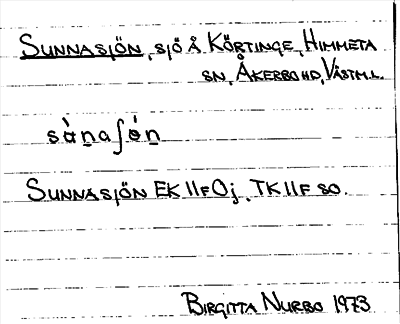 SUNNASJÖN, SJÖ Å KÖRTINGE, HIMMETA
SN, ÅKERBO HD, VÄSTM.L.
sὰ̠naʃɵ́n̠
SUNNASJÖN EK 11F 0j, TK 11F SO.
BIRGITTA NURBO 1973